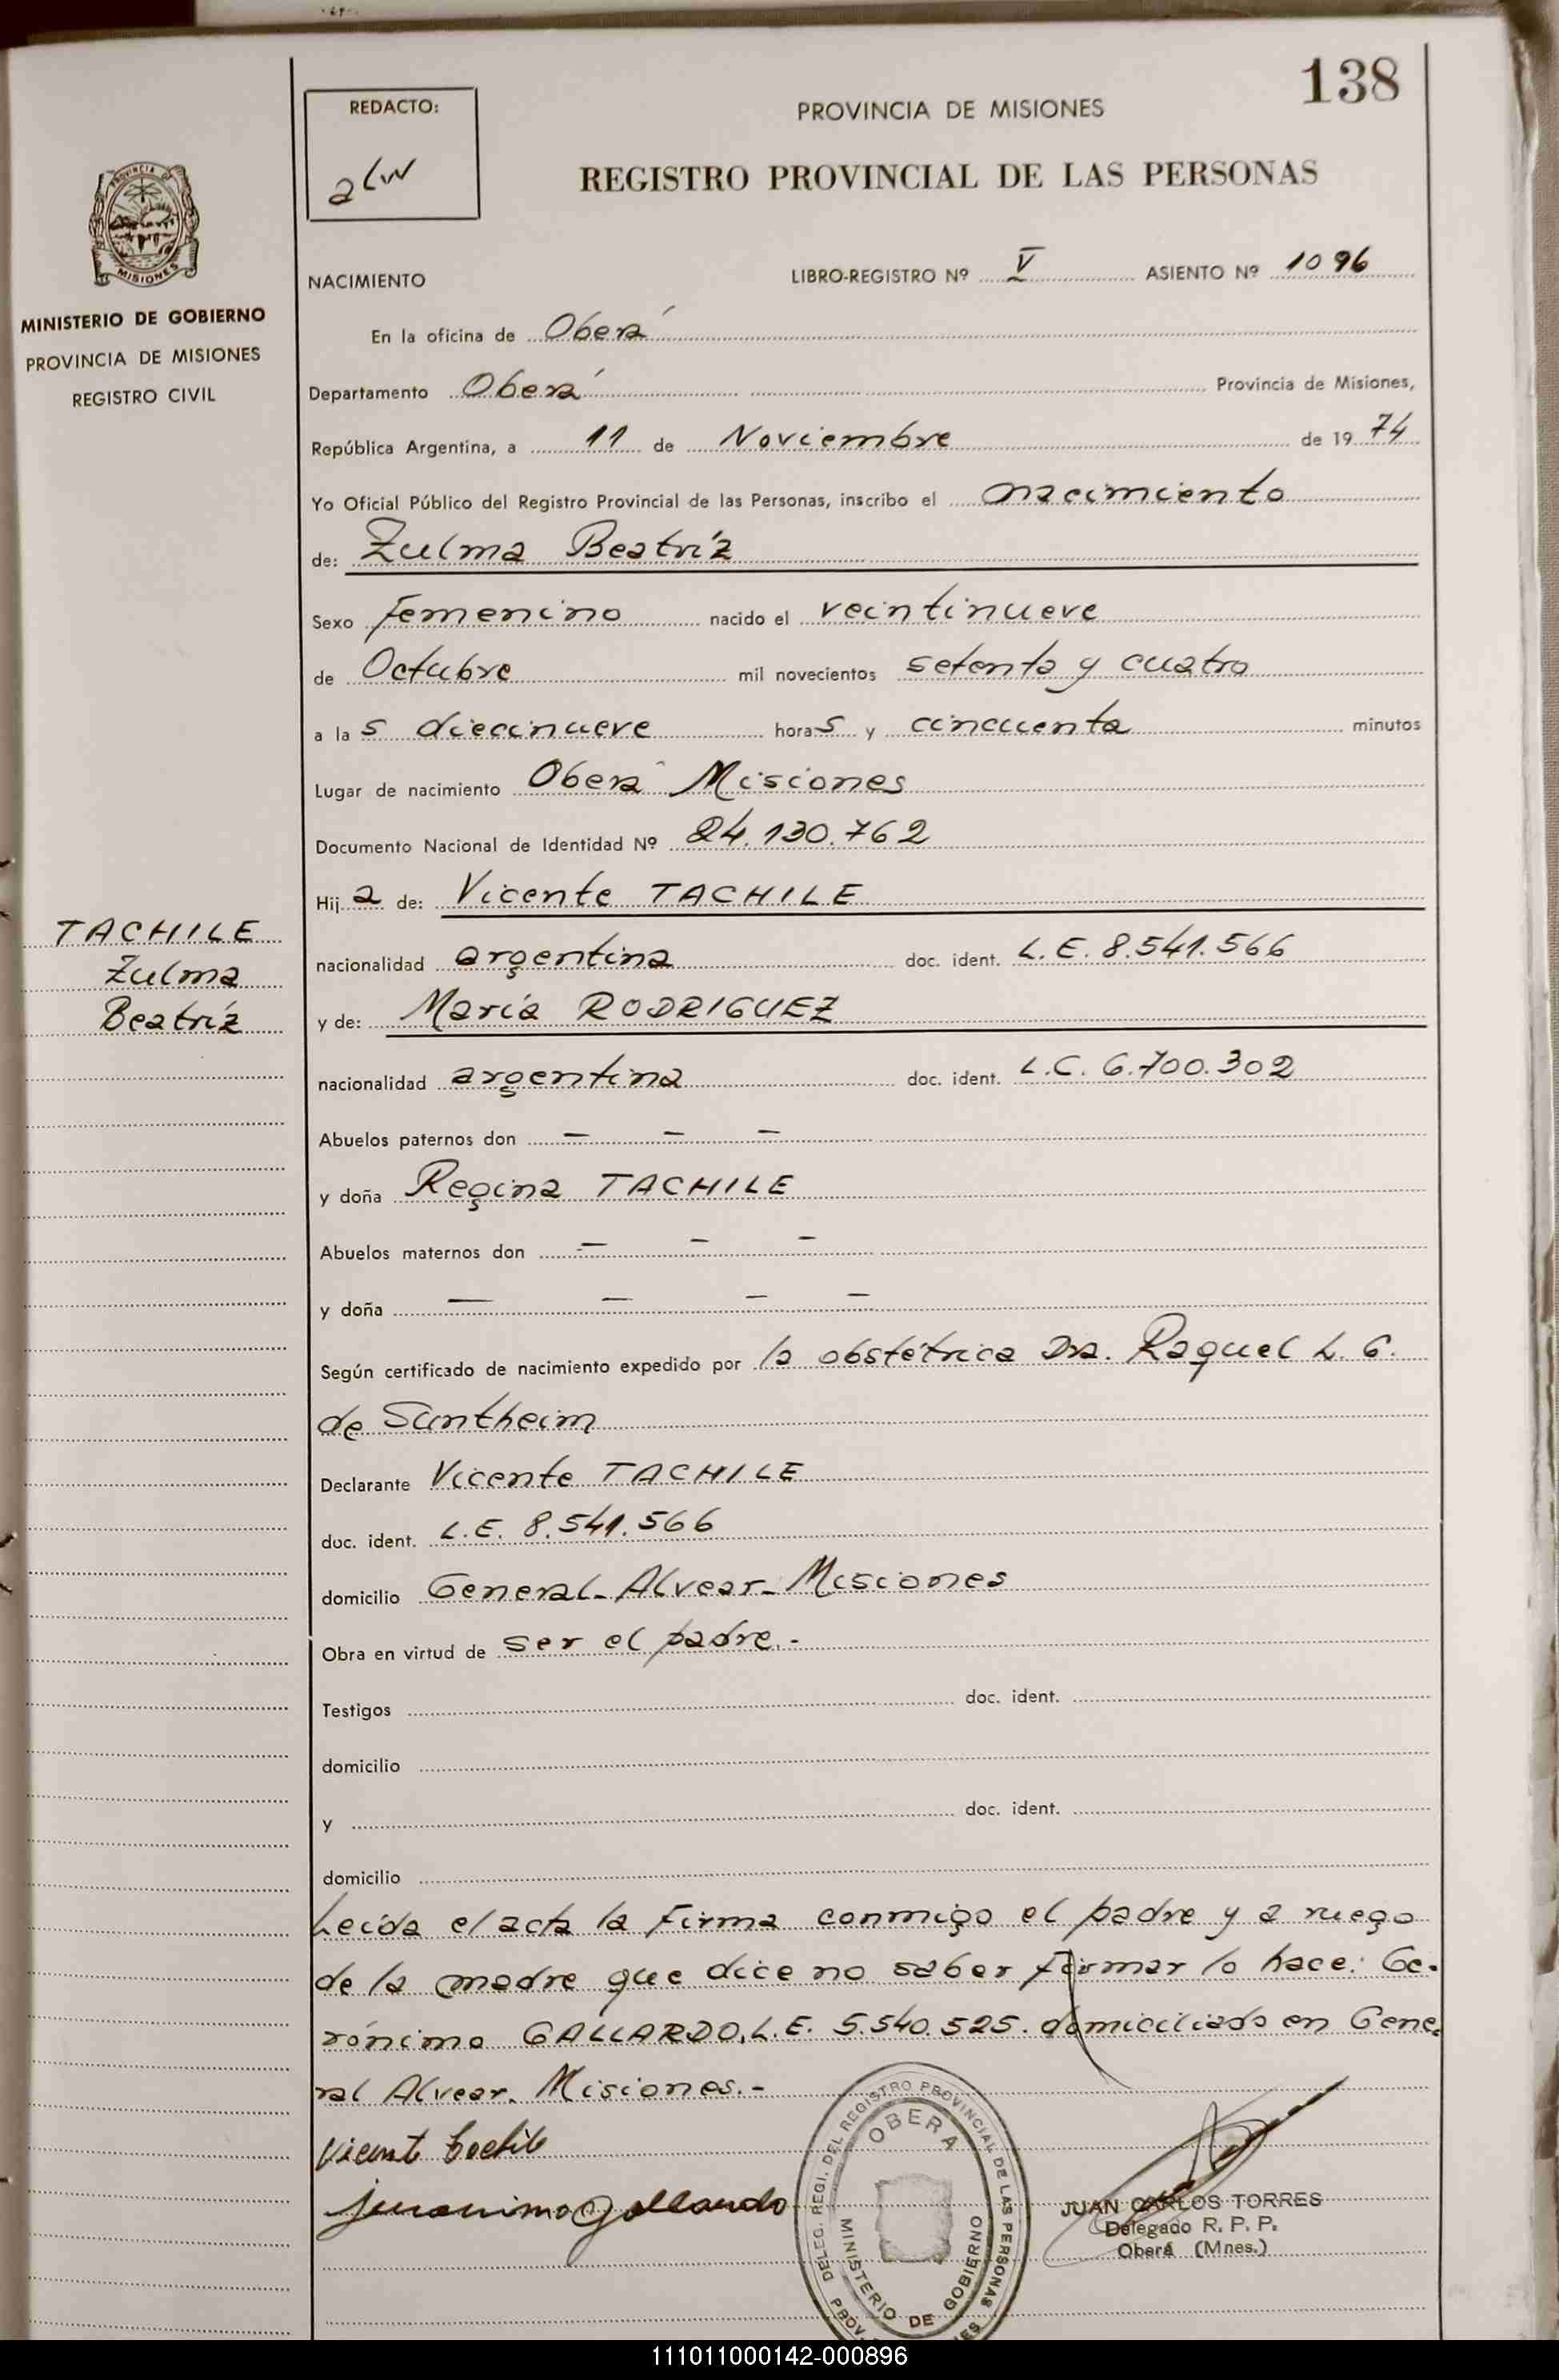 138
REDACTO:
alw
PROVINCIA DE MISIONES
REGISTRO PROVINCIAL DE LAS PERSONAS
PROVINCIA
MISIONES
MINISTERIO DE GOBIERNO
PROVINCIA DE MISIONES
REGISTRO CIVIL
NACIMIENTO LIBRO-REGISTRO Nº V ASIENTO Nº 1096
En la oficina de Oberá
Departamento Oberá Provincia de Misiones,
República Argentina, a 11 de Noviembre de 1974
Yo Oficial Público del Registro Provincial de las Personas, inscribo el nacimiento
de: Zulma Beatríz
Sexo Femenino nacido el veintinueve
de Octubre mil novecientos setenta y cuatro
a las diecinueve horas y cincuenta minutos
Lugar de nacimiento Oberá Misiones
Documento Nacional de Identidad Nº 24.130.762
Hija de: Vicente TACHILE
TACHILE
Zulma
Beatríz
nacionalidad argentina doc. ident. L.E. 8.541.566
y de: María RODRIGUEZ
nacionalidad argentina doc. ident. L.C. 6.700.302
Abuelos paternos don — — —
y doña Regina TACHILE
Abuelos maternos don — — —
y doña — — — —
Según certificado de nacimiento expedido por la obstétrica Dra. Raquel L. G.
de Suntheim
Declarante Vicente TACHILE
doc. ident. L.E. 8.541.566
domicilio General-Alvear-Misiones
Obra en virtud de ser el padre.-
Testigos doc. ident.
domicilio
y doc. ident.
domicilio
Leída el acta la firma conmigo el padre y a ruego
de la madre que dice no saber firmar lo hace: Ge-
rónimo GALLARDO, L.E. 5.540.525. domiciliado en Gene-
ral Alvear. Misiones.-
Vicente Tachile
Jeronimo Gallardo
DELEG. REGI. DEL REGISTRO PROVINCIAL DE LAS PERSONAS
OBERA
MINISTERIO DE GOBIERNO
PROV.
JUAN CARLOS TORRES
Delegado R. P. P.
Oberá (Mnes.)
111011000142-000896